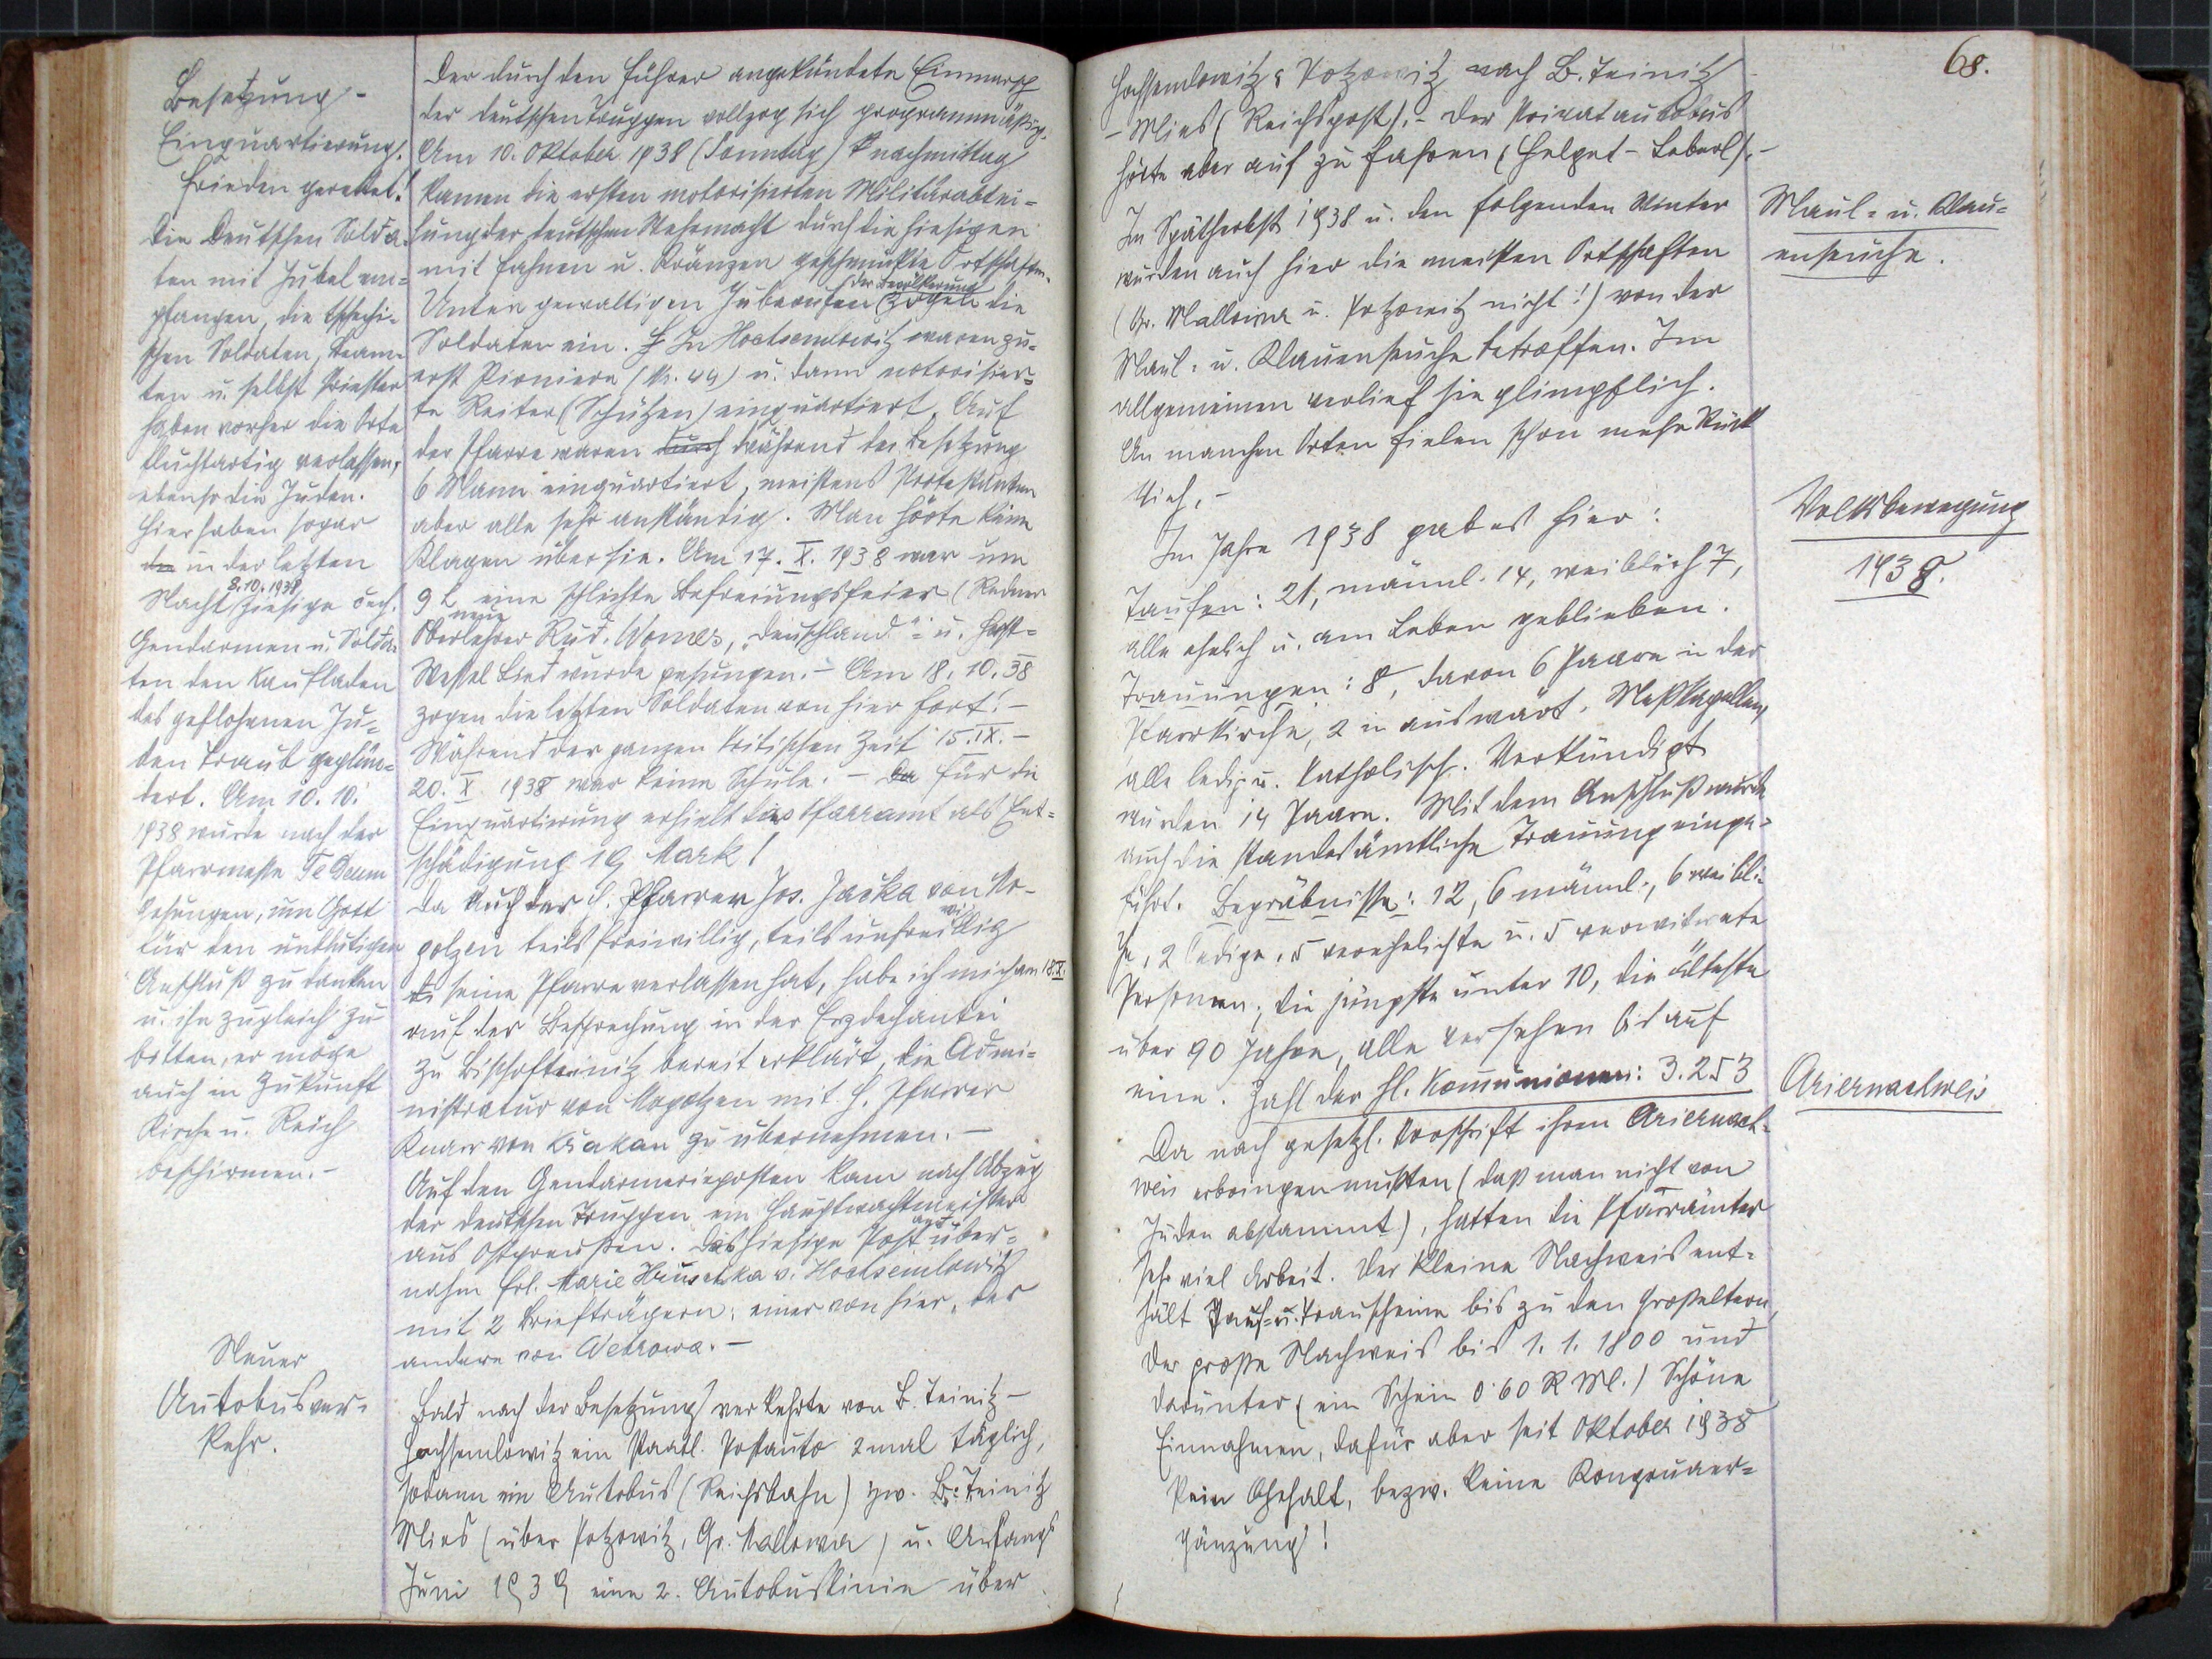 Besetzung -
Einquartierung.
Frieden gerettet!
Die Deutschen Solda-
ten mit Jubel em-
pfangen, die tschechi-
schen Soldaten, Beam-
ten u. selbst Priester
haben vorher die Orte
fluchtartig verlassen,
ebenso die Juden.
Hier haben sogar
in der letzten
8.10.1938
Nacht hiesige čech.
Gendarmen u. Solda-
ten den Kaufladen
des geflohenen Ju-
den Traub geplün-
dert. Am 10. 10.
1938 wurde nach der
Pfarrmesse Te Deum
gesungen, um Gott
für den unblutigen
Anschluß zu danken
u. ihn zugleich zu
bitten, er möge
auch in Zukunft
Kirche u. Reich
beschirmen. -
Neuer
Autobusver-
kehr.
Der durch den Führer angekündete Einmarsch
der deutschen Truppen vollzog sich programmäßig.
Am 10. Oktober 1938 (Sonntag) nachmittag
kamen die ersten motorisierten Militärabtei-
lung der deutschen Wehrmacht durch die hiesigen
mit Fahnen u. Kränzen geschmückte Ortschaften.
der Bevölkerung
Unter gewaltigen Jubelrufen zogen die
Soldaten ein. In Hochsemlowitz waren zu-
erst Pioniere (Nr. 44) u. dann motorisier-
te Reiter (Schützen) einquartiert. Auf
der Pfarre waren durch während der Besetzung
6 Mann einquartiert, meistens Protestanten
aber alle sehr anständig. Man hörte keine
Klagen über sie. Am 17. X. 1938 war um
9 h eine schlichte Befreiungsfeier (Redner
neue
Oberlehrer Rud. Womes, „Deutschland" u. Horst-
Wessel Lied wurde gesungen. - Am 18. 10. 38
zogen die letzten Soldaten von hier fort! -
Während der ganzen kritischen Zeit 15. IX. -
20. X. 1938 war keine Schule. - Für die
Einquartierung erhielt das Pfarramt als Ent-
schädigung 19 Mark!
Da auch der h. Pfarrer Jos. Jačka von Mo-
golzen teils freiwillig, teils unfreiwillig
seine Pfarre verlassen hat, habe ich mich am 18. X.
auf der Besprechung in der Erzdechantei
zu Bischofteinitz bereit erklärt, die Admi-
nistratur von Mogolzen mit h. Pfarrer
Knarr von Krakau zu übernehmen. -
Auf den Gendarmerieposten kam nach Abzug
der deutschen Truppen ein Hauptwachtmeister
aus Ostpreußen. Das hiesige Postamt über-
nahm Frl. Marie Hruschka v. Hochsemlowitz
mit 2 Briefträgern: einer von hier, der
andere von Wetrowa. -
Bald nach der Besetzung verkehrte von B. Teinitz -
Hochsemlowitz ein staatl. Postauto 2mal täglich,
sodann ein Autobus (Reichsbahn) zw. B. Teinitz
Mies (über Potzowitz, Gr. Mallowa) u. Anfangs
Juni 1939 eine 2. Autobuslinie über
68.
Hochsemlowitz, Potzowitz nach B. Teinitz
- Mies (Reichspost). - Der Privatautobus
hörte aber auf zu fahren (Helget - Leberl). -
Im Spätherbst 1938 u. den folgenden Winter
wurden auch hier die meisten Ortschaften
(Gr. Mallowa u. Potzowitz nicht!) von der
Maul- u. Klauenseuche betroffen. Im
allgemeinen verlief sie glimpflich.
An manchen Orten fielen schon mehr Stück
Vieh. -
Im Jahre 1938 gab es hier:
Taufen: 21, männl. 14, weiblich 7,
alle ehelich u. am Leben geblieben.
Trauungen: 8, davon 6 Paare in der
Pfarrkirche, 2 in auswärt. Meßkapellen,
alle ledig u. katholisch. Verkündigt
wurden 14 Paare. Mit dem Anschluß wurde
auch die standesämtliche Trauung einge-
führt. Begräbnisse: 12, 6 männl., 6 weibli-
che, 2 ledige, 5 verehelichte u. 5 verwitwete
Personen, die jüngste unter 10, die älteste
über 90 Jahre, alle versehen bis auf
eine. Zahl der hl. Kommunionen: 3.253
Da nach gesetzl. Vorschrift ihren Ariernach-
weis erbringen mußten (daß man nicht von
Juden abstammt), hatten die Pfarrämter
sehr viel Arbeit. Der kleine Nachweis ent-
hält Tauf- u. Trauscheine bis zu den Großeltern,
der große Nachweis bis 1. 1. 1800 und
darunter (ein Schein 0·60 RM.) Schöne
Einnahmen, dafür aber seit Oktober 1938
kein Gehalt, bezw. keine Kongruaer-
gänzung!
Maul- u. Klau-
enseuche.
Volksbewegung
1938.
Ariernachweis